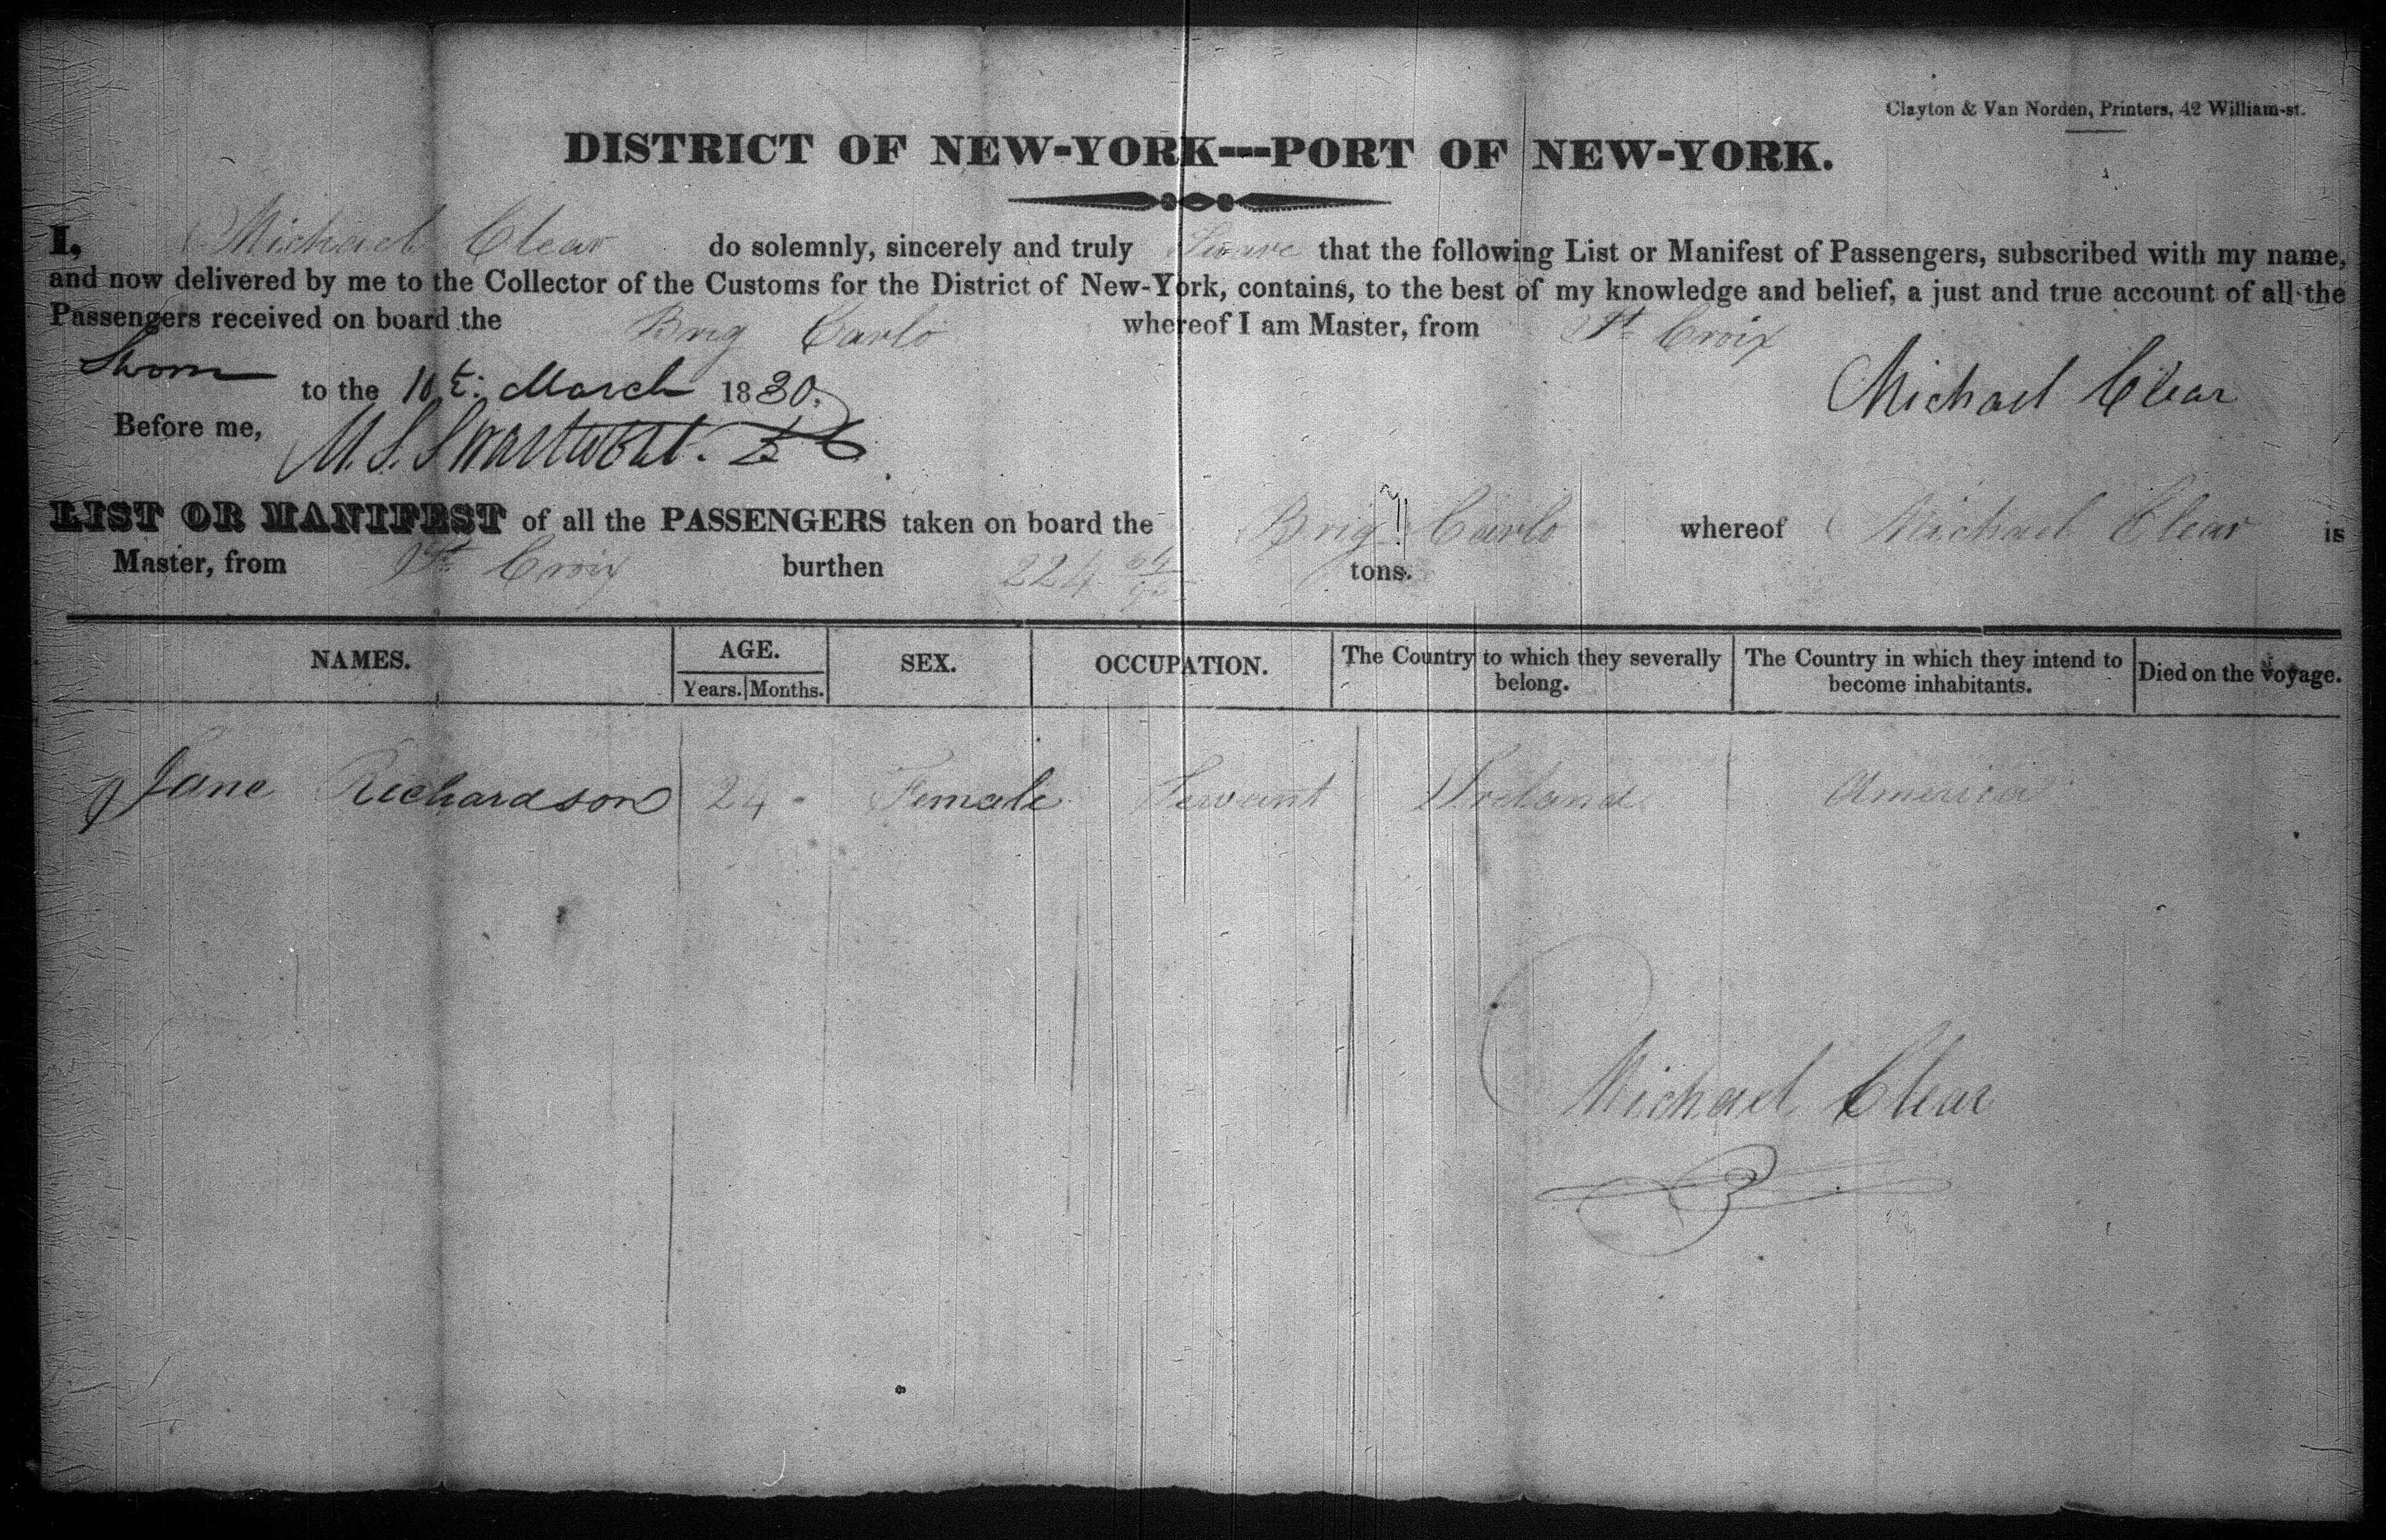 Clayton & Van Norden, Printers, 42 William-st.
DISTRICT OF NEW-YORK---PORT OF NEW-YORK.
I, Michael Clear do solemnly, sincerely and truly Sware that the following List or Manifest of Passengers, subscribed with my name,
and now delivered by me to the Collector of the Customs for the District of New-York, contains, to the best of my knowledge and belief, a just and true account of all the
Passengers received on board the Brig Carlo whereof I am Master, from St Croix
Sworn to the 10th March 1830. Michael Clear
Before me, M. S. Swartwout.
LIST OR MANIFEST of all the PASSENGERS taken on board the Brig Carlo whereof Michael Clear is
Master, from St Croix burthen 224 tons.
NAMES. AGE. SEX. OCCUPATION. The Country to which they severally belong. The Country in which they intend to become inhabitants. Died on the voyage.
Years. Months.
Jane Richardson 24 - Female Servant Ireland America
Michael Clear